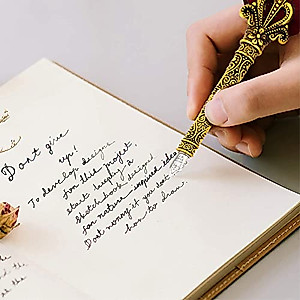 Dont give
up!
To develop designs
for this project
start keeping a
sketchbook design
for nature inspired
Dont worry if you dont
how to draw.